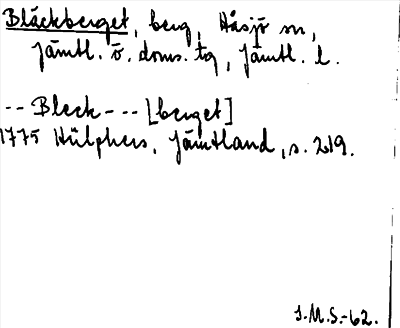 Bläckberget, berg, Håsjö sn,
Jämtl. ö. doms. tg, Jämtl. l.
-- Bleck --- [berget]
1775 Hülphers, Jämtland, s. 219.
I.M.S.-62.